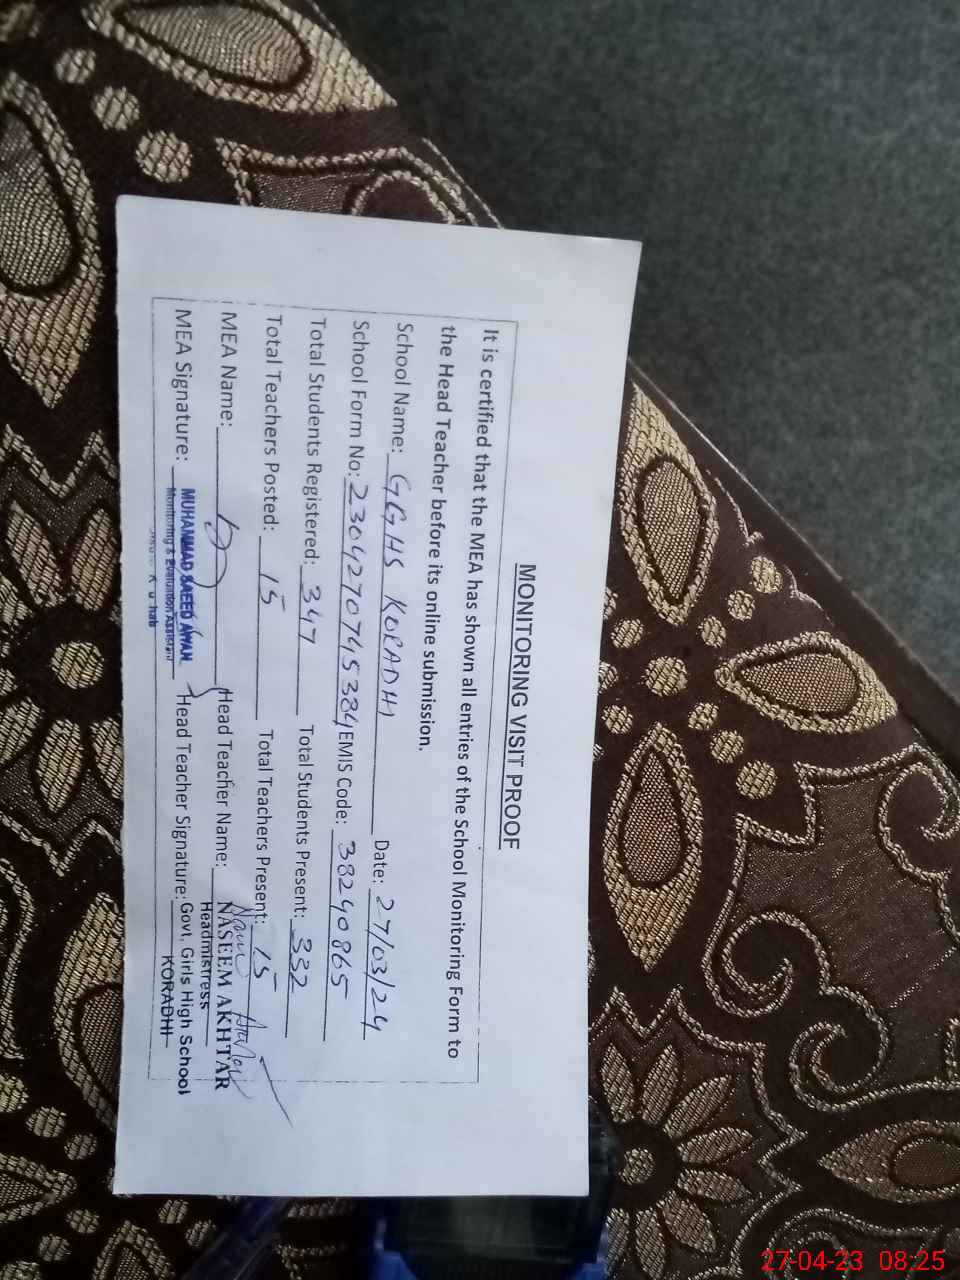 MONITORING VISIT PROOF
It is certified that the MEA has shown all entries of the School Monitoring Form to
the Head Teacher before its online submission.
School Name: GGHS KORADHI Date: 27/03/24
School Form No: 230427074 5384 EMIS Code: 38240865
Total Students Registered: 347 Total Students Present: 332
Total Teachers Posted: 15 Total Teachers Present: 15
MEA Name: Head Teacher Name: NASEEM AKHTAR
Headmistress
MEA Signature: MUHAMMAD SAEED AWAN Head Teacher Signature: Govt. Girls High School
Monitoring & Evaluation Assistant KORADHI
27-04-23 08:25